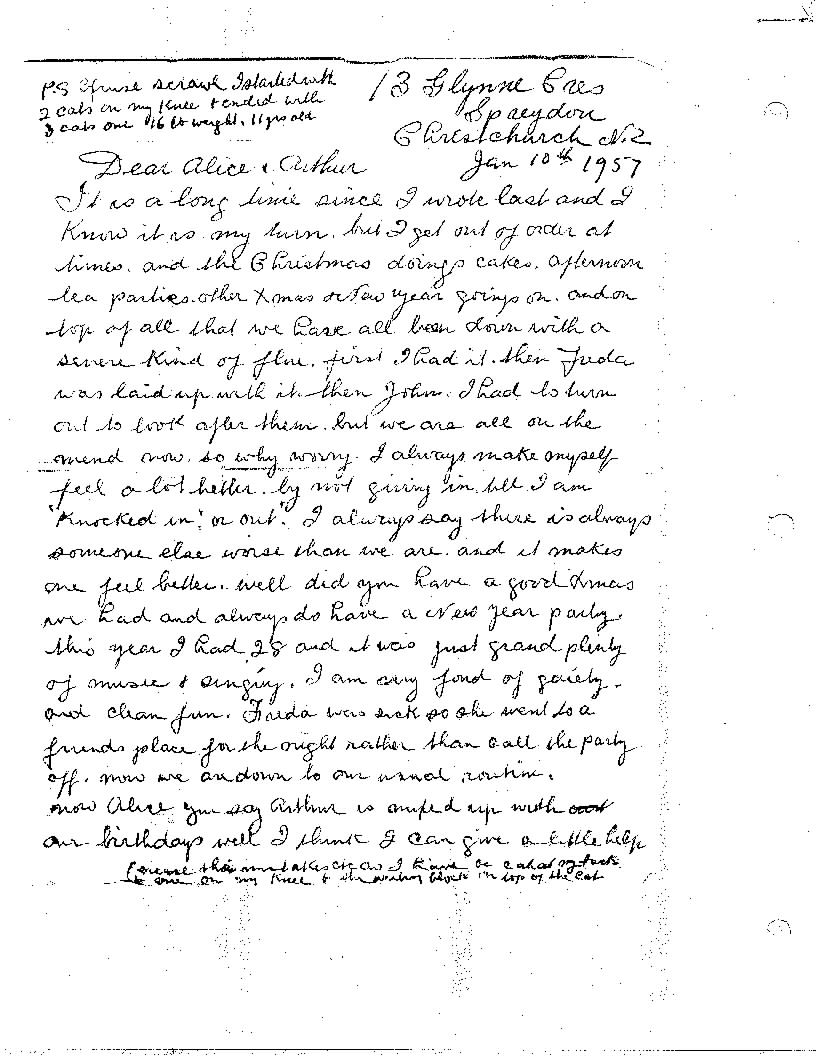 P.S Excuse scrawl I started with
2 cats on my knee & ended with
3 cats one 16 lb weight. 11 yrs old
13 Glynne Cres
Spreydon
Christchurch N.Z
Jan 10th 1957
Dear Alice & Arthur
It is a long time since I wrote last and I
know it is my turn, but I get out of order at
times. and the Christmas doings cakes, afternoon
tea parties. other Xmas or New year goings on. and on
top of all that we have all been down with a
severe kind of flue. first I had it. then Freda
was laid up with it then John. I had to turn
out to look after them. but we are all on the
mend now. so why worry. I always make myself
feel a lot better. by not giving in till I am
"Knocked in" or out". I always say there is always
someone else worse than we are. and it makes
one feel better. well did you have a good Xmas
we had and always do have a New Year party.
this year I had 28 and it was just grand plenty
of music & singing. I am very fond of gaiety.
and clean fun. Freda was sick so she went to a
friends place for the night rather than call the party
off. now we are down to our usual routine.
now Alice you say Arthur is mixed up with
our birthdays well I think I can give a little help
excuse the mistakes as I have a cat at my back
& one on my knee & the writing block on top of the cat